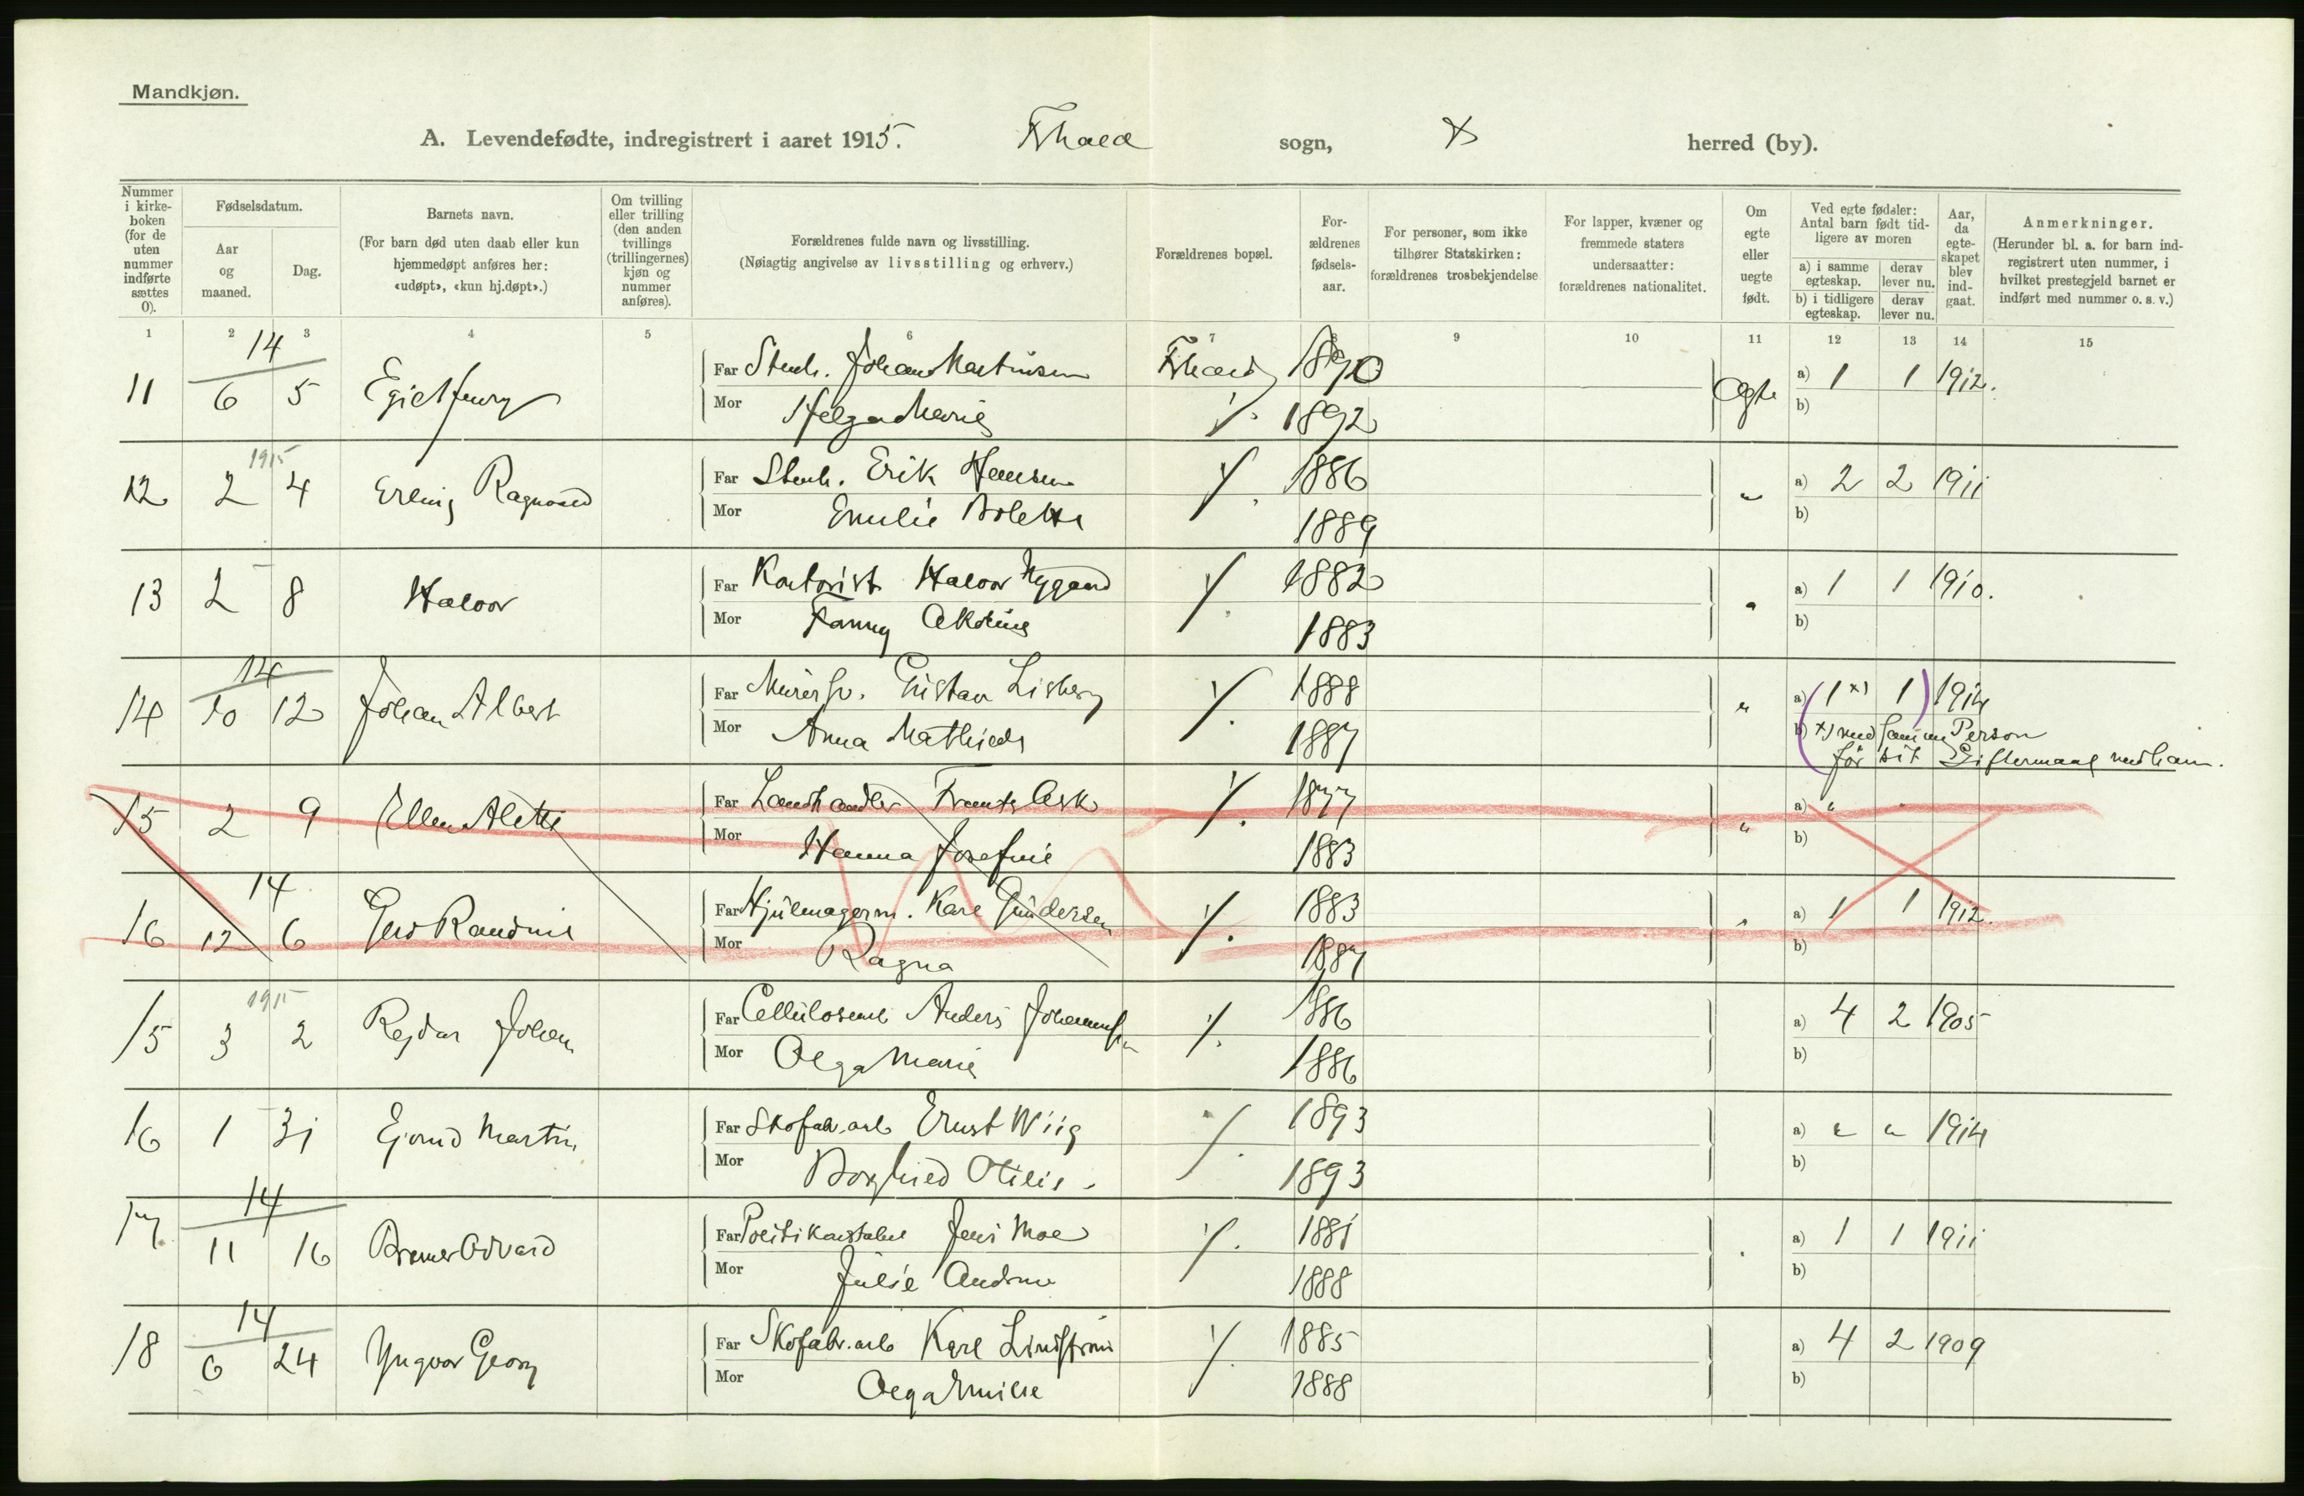 Mandkjøn.
A. Levendefødte, indregistrert i aaret 1915. Fhald sogn, herred (by).
Nummer i kirkeboken (for de uten nummer indførte sættes 0).
Fødselsdatum.
Aar og maaned.
Dag.
Barnets navn.
(For barn død uten daab eller kun hjemmedøpt anføres her: «udøpt», «kun hj.døpt».)
Om tvilling eller trilling (den anden tvillings (trillingernes) kjøn og nummer anføres).
Forældrenes fulde navn og livsstilling.
(Nøiagtig angivelse av livsstilling og erhverv.)
Forældrenes bopæl.
Forældrenes fødselsaar.
For personer, som ikke tilhører Statskirken: forældrenes trosbekjendelse
For lapper, kvæner og fremmede staters undersaatter: forældrenes nationalitet.
Om egte eller uegte født.
Ved egte fødsler: Antal barn født tidligere av moren
a) i samme egteskap. derav lever nu.
b) i tidligere egteskap. derav lever nu.
Aar, da egteskapet blev indgaat.
Anmerkninger.
(Herunder bl. a. for barn indregistrert uten nummer, i hvilket prestegjeld barnet er indført med nummer o. s. v.)
1 2 3 4 5 6 7 8 9 10 11 12 13 14 15
14
11 6 5 Far Stenh. Johan Martinsen Fhald 1890 Egte a) 1 1 1912.
Mor Helga Marie 1892 b)
1915
12 2 4 Erling Ragnvald Far Stenh. Erik Hansen 1886 " a) 2 2 1911
Mor Emilie Bolette 1889 b)
13 2 8 Halvor Far Kontorist Halvor Nygaard 1882 " a) 1 1 1910.
Mor Fanny 1883 b)
14
14 10 12 Johan Albert Far Murersv. Gustav Lisberg 1888 " a) 1 x) 1 1914
Mor Anna Mathilde 1887 b) x) med samme Person
før sit Giftermaal med ham.
15 2 9 Ellen Alette Far Landhandler Frants Ask 1877 " a) " "
Mor Hanna Josefine 1883 b)
14
16 12 6 Gerd Randine Far Hjulmagerm. Karl Gundersen 1883 " a) 1 1 1912.
Mor Ragna 1887 b)
1915
15 3 2 Rejdar Johan Far Anders Johannessen 1886 a) 4 2 1905
Mor Olga Marie 1886 b)
16 1 31 Ejvind Martin Far Skofabr.arb Ernst Wiig 1893 a) " " 1914
Mor Borghild Otilie. 1893 b)
14
17 11 16 Far Politikonstabel Jens Moe 1881 a) 1 1 1911
Mor Julie 1888 b)
14
18 6 24 Yngvar Georg Far Skofabr.arb Karl Lindstrøm 1885 a) 4 2 1909
Mor Olga Emilie 1888 b)